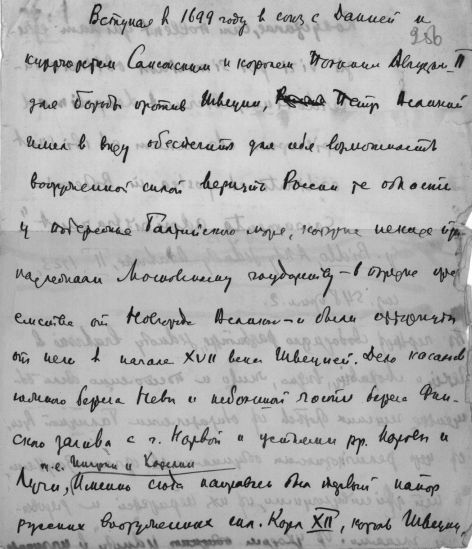 Вступая в 1699 году в союз с Данией и
286
курфюрстом Саксонским и королем Польши Август. II
для борьбы против Швеции, Петр Великий
имел в виду обеспечить для себя возможность
вооруженной силой вернуть России те области
у побережья Балтийского моря, которые некогда при-
надлежали Московскому государству – в порядке пре-
емства от Новгорода Великого – и были отторгнуты
от него в начале XVII века Швецией. Дело касалось
южного берега Невы и небольшой части берега Фин-
ского залива с г. Нарвой и устьями рр. Наровы и
т.е. Ингрии и Карелии
Луги, Именно сюда направлен был первый напор
русских вооруженных сил. Карл XII, король Швеции,